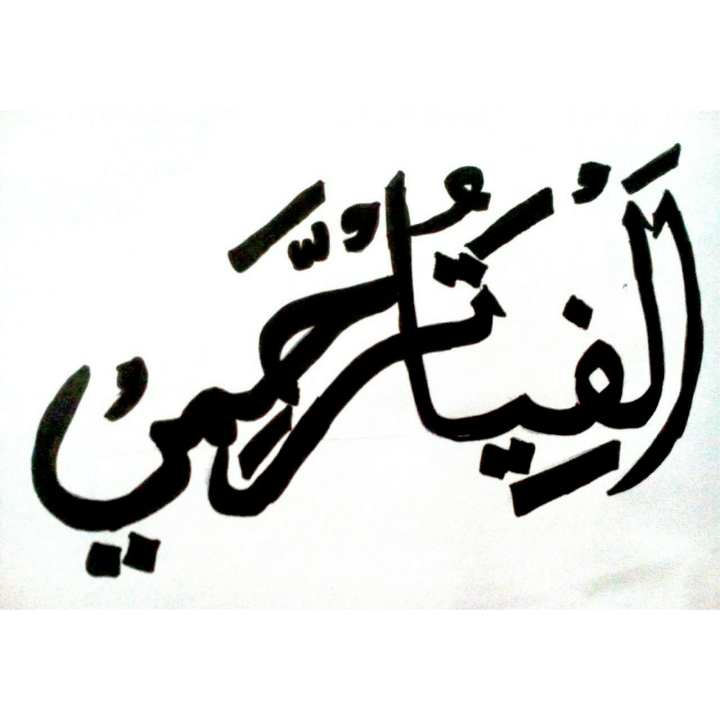 اَلْفِيَاتُرَّحْمِيْ